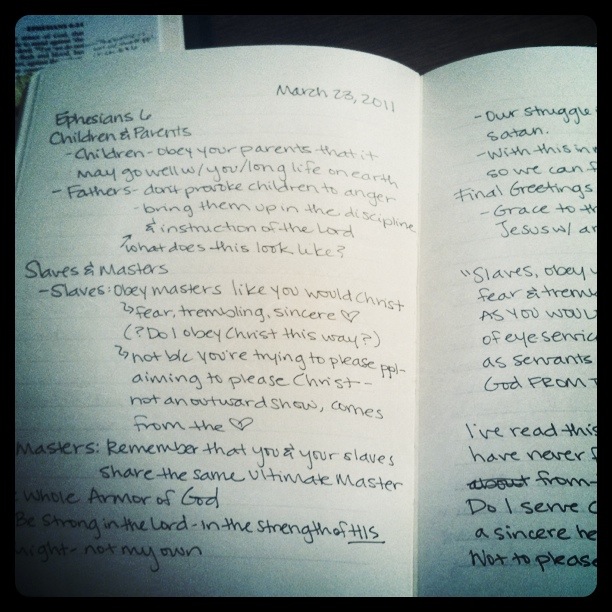 EPHESIANS 6:24
March 23, 2011
Ephesians 6
Children & Parents
- Children - obey your parents that it
may go well w/ you/long life on earth
- Fathers - don't provoke children to anger
- bring them up in the discipline
& instruction of the Lord
what does this look like?
Slaves & Masters
- Slaves: Obey masters like you would Christ
fear, trembling, sincere ♡
(? Do I obey Christ this way?)
not b/c you're trying to please ppl -
aiming to please Christ -
not an outward show, comes
from the ♡
Masters: Remember that you & your slaves
share the same Ultimate Master
: Whole Armor of God
Be strong in the Lord - in the strength of HIS
might - not my own
- Our struggle
satan.
- With this in
so we can
Final Greetings
- Grace to
Jesus w/
"Slaves, obey
fear &
AS YOU WOUL
of eye service
as servants
God FROM
I've read this
have never
about from
Do I serve
a sincere
Not to please